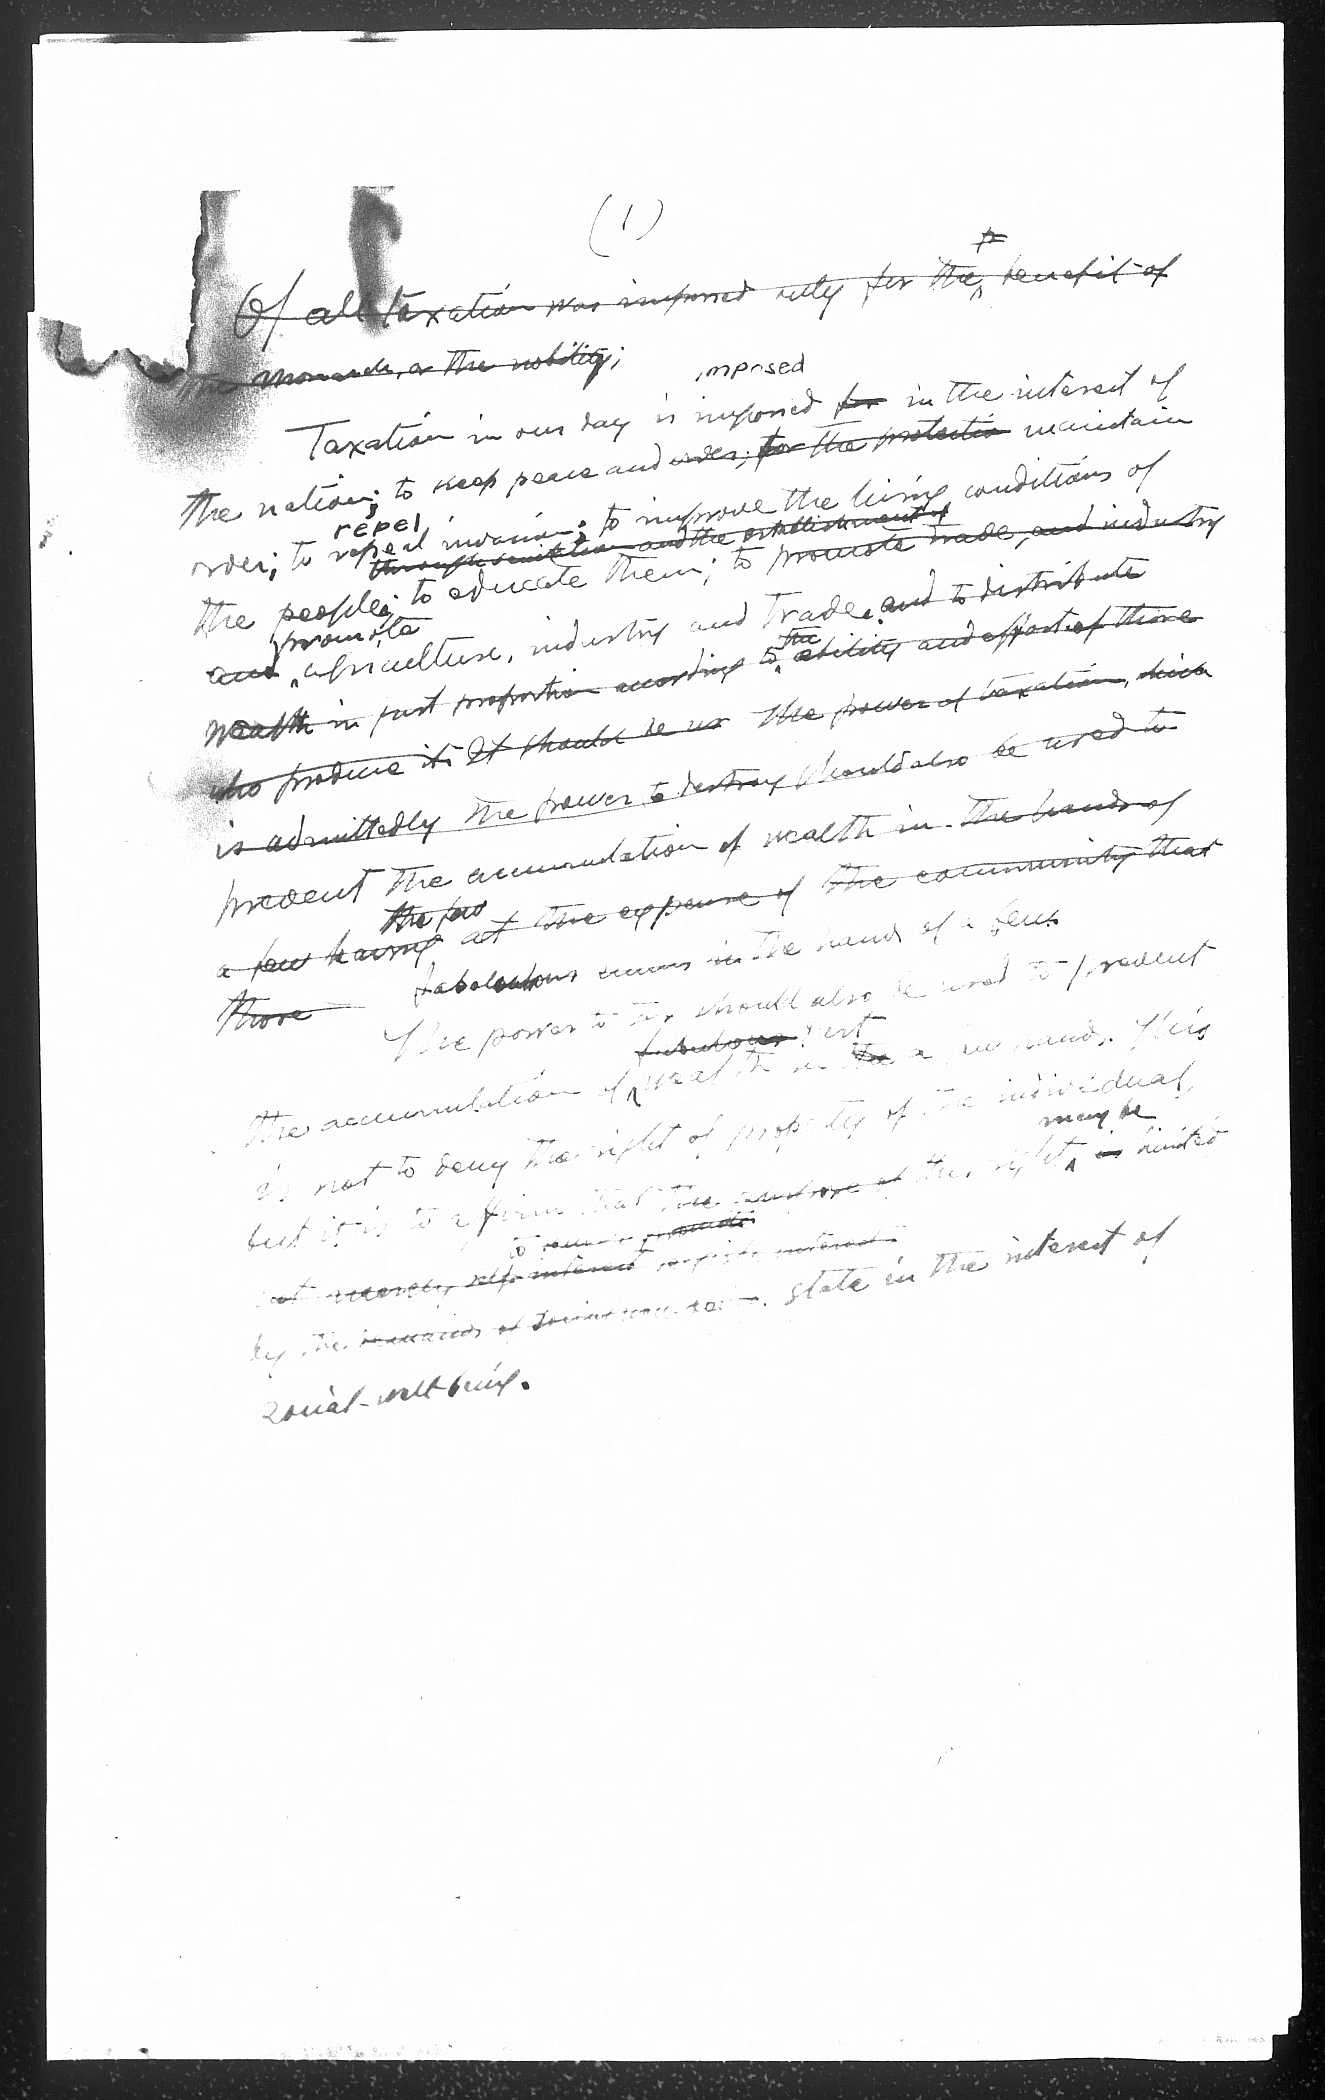 (1)
Of all taxation was imposed only for the benefit of
the monarch, or the nobility;
imposed
Taxation in our day is imposed for in the interest of
the nation; to keep peace and order; for the protection maintain
repel
order; to repeal invasion; to improve the living conditions of
through sanitation and the establishment of
the people; to educate them; to promote trade, and industry
promote
and agriculture, industry and trade. and to distribute
the
wealth in just proportion according to ability and effort of those
who produce it. It should be us The power of taxation, which
is admittedly the power to destroy should also be used to
prevent the accumulation of wealth in the hands of
the few
a few having at the expense of the community that
those fabulous sums in the hands of a few.
The power to tax should also be used to prevent
fabulous vast
the accumulation of wealth in the a few hands. This
is not to deny the right of property of the individual,
may be
but it is to affirm that the purpose of the right is limited
to
not merely self-interest
by the demands of state in the interest of
social-well being.